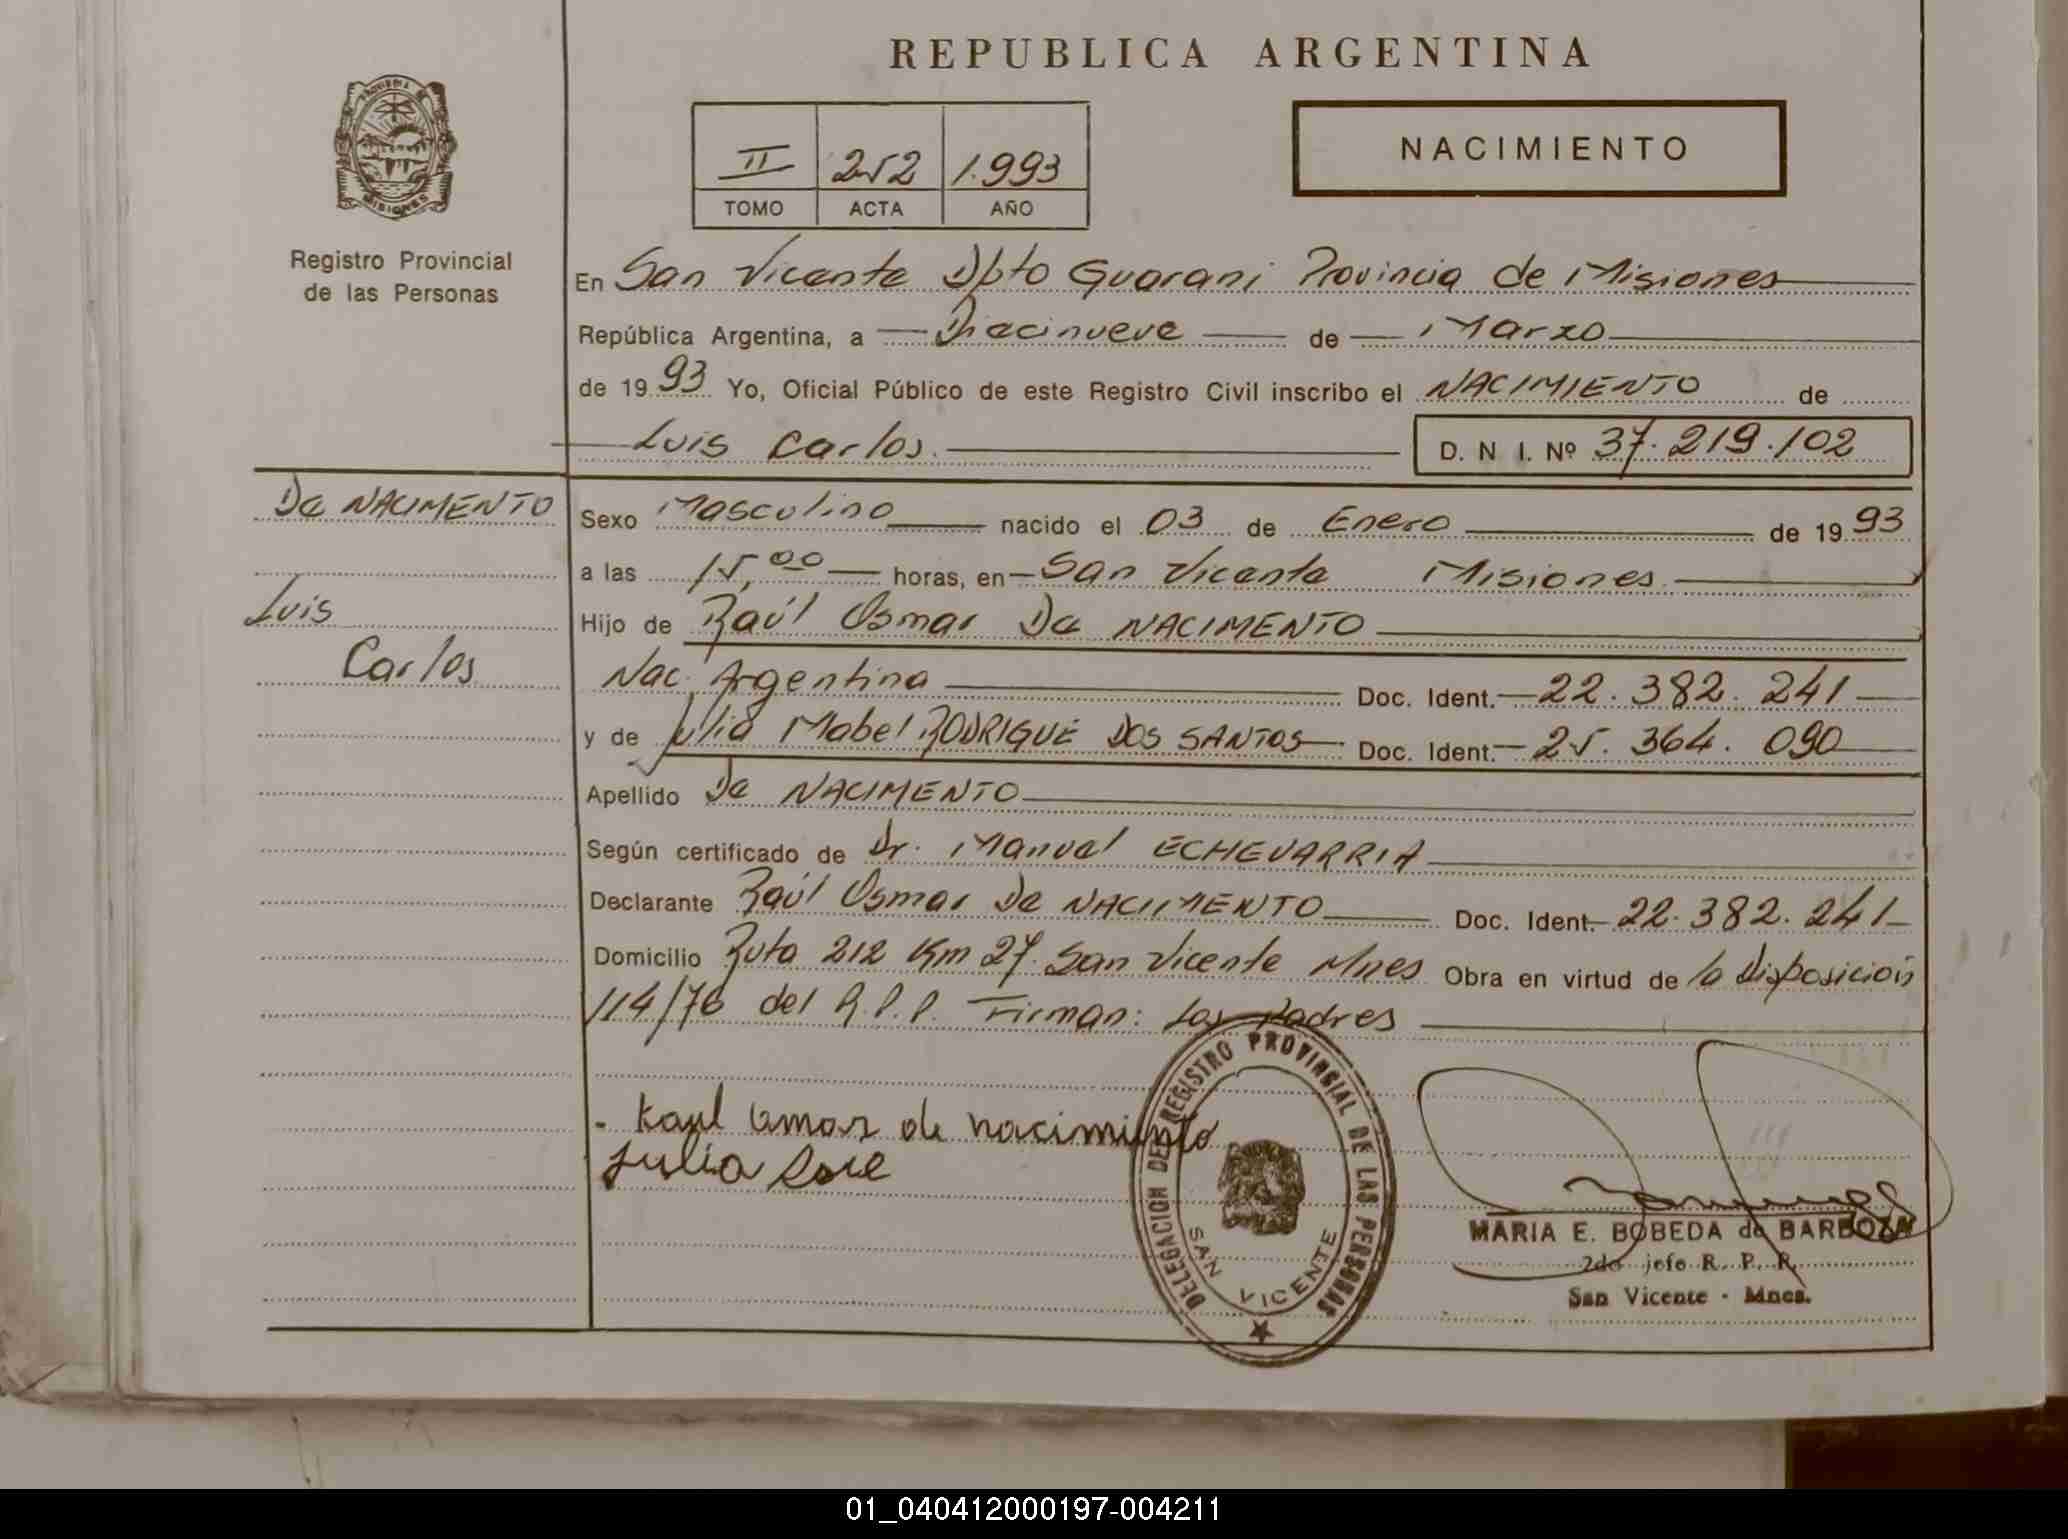 REPUBLICA ARGENTINA
PROVINCIA DE
MISIONES
Registro Provincial
de las Personas
II 252 1.993
TOMO ACTA AÑO
NACIMIENTO
En San Vicente Dpto Guarani Provincia de Misiones
República Argentina, a Diecinueve de Marzo
de 1993 Yo, Oficial Público de este Registro Civil inscribo el NACIMIENTO de
Luis Carlos. D. N I. Nº 37.219.102
De NACIMENTO
Luis
Carlos
Sexo Masculino nacido el 03 de Enero de 1993
a las 15,00 horas, en San Vicente Misiones
Hijo de Raúl Osmar De NACIMENTO
Nac. Argentina Doc. Ident. 22.382.241
y de Julia Mabel RODRIGUE DOS SANTOS Doc. Ident. 25.364.090
Apellido De NACIMENTO
Según certificado de Dr. Manuel ECHEVARRIA
Declarante Raúl Osmar De NACIMENTO Doc. Ident. 22.382.241
Domicilio Ruta 212 Km 27. San Vicente Mnes Obra en virtud de la Disposición
114/76 del R.P.P. Firman: Los Padres
Raul Osmar de nacimiento
Julia
DELEGACION DEL REGISTRO PROVINCIAL DE LAS PERSONAS
SAN VICENTE
MARIA E. BOBEDA de BARBOZA
2do jefe R. P. P.
San Vicente - Mnes.
01_040412000197-004211